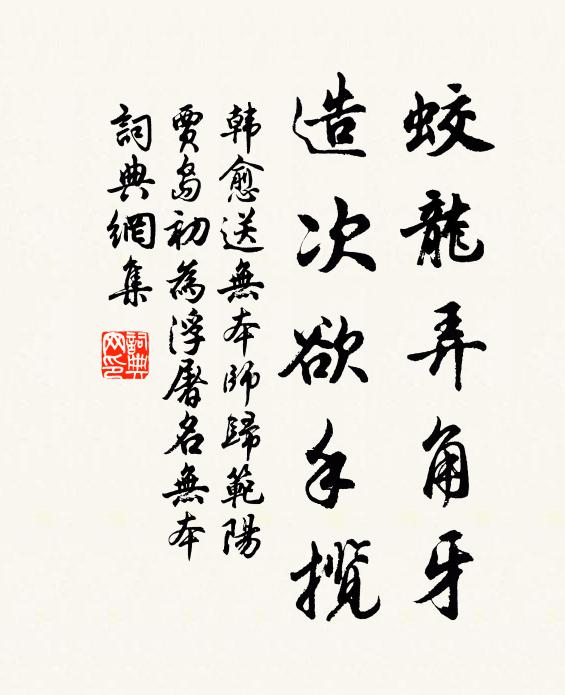 蛟龍弄角牙
造次欲手揽
韩愈送無本師歸範陽
賈島初為浮屠名無本
詞典網集
詞典
网印